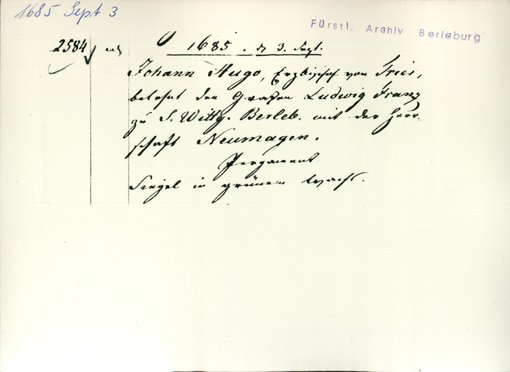 1685 Sept 3
Fürstl. Archiv Berleburg
2584
1685. d. 3. Sept.
Johann Hugo, Erzbischof von Trier,
belehnt den Grafen Ludwig Franz
zu S. Wittg. Berleb. mit der Herr-
schaft Neumagen.
Pergament
Siegel in grünem Wachs.